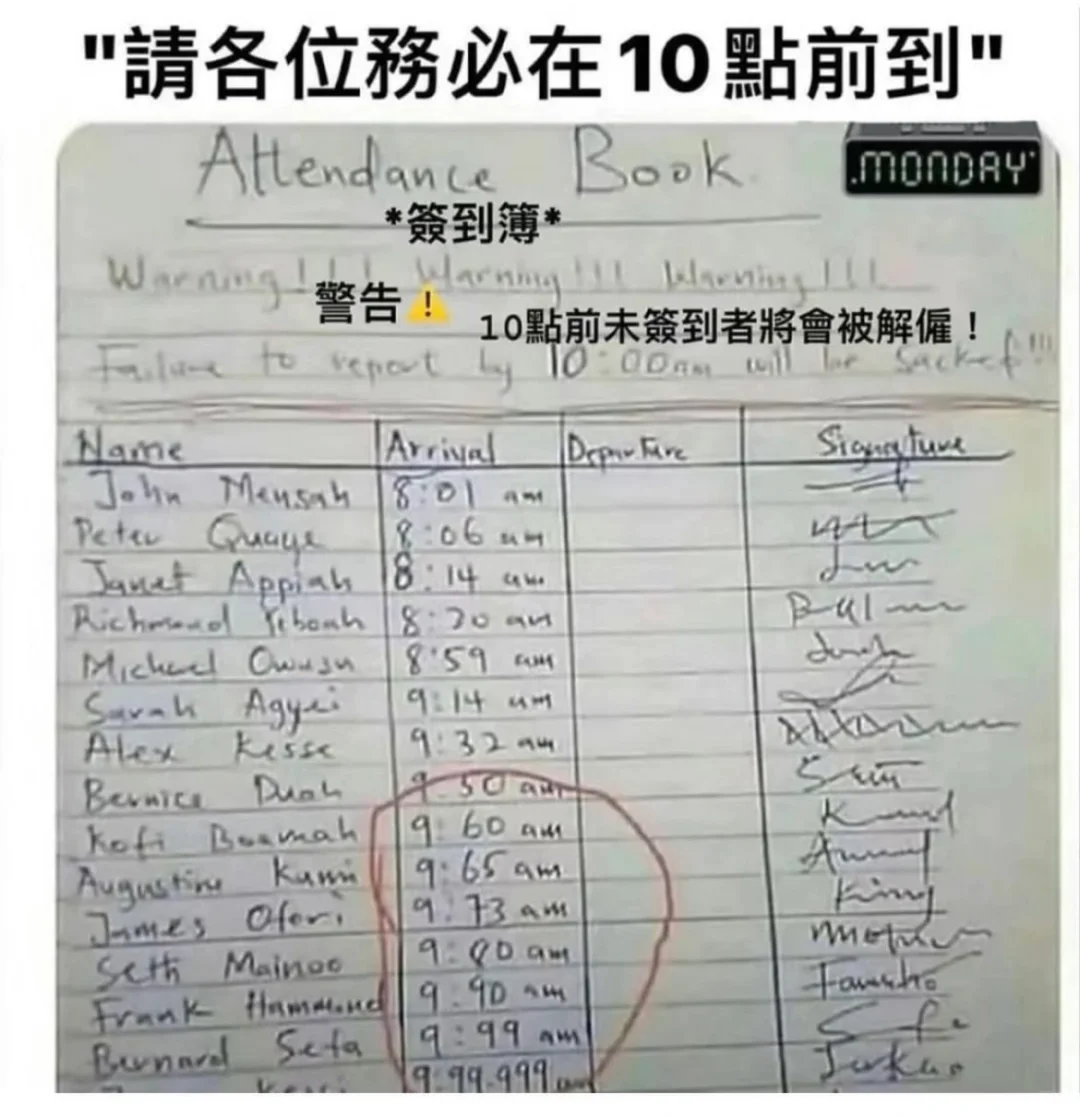 "請各位務必在10點前到"
Attendance Book
.MONDAY
*簽到簿*
Warning!!! Warning!!! Warning!!!
警告⚠️
10點前未簽到者將會被解僱！
Failure to report by 10:00am will be sacked!!!
Name Arrival Departure Signature
John Mensah 8:01 am
Peter Quaye 8:06 am
Janet Appiah 8:14 am
Richmond Yeboah 8:20 am
Michael Owusu 8:59 am
Sarah Agyei 9:14 am
Alex Kesse 9:32 am
Bernice Duah 9:50 am
Kofi Boamah 9:60 am
Augustine Kumi 9:65 am
James Ofori 9:73 am
Seth Mainoo 9:80 am
Frank Hammond 9:90 am
Bernard Sefa 9:99 am
9:99.999 am